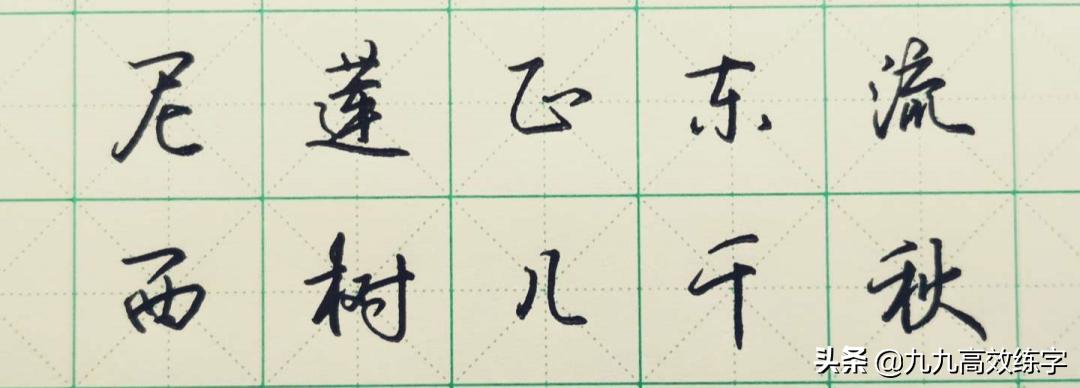 尼莲正东流
西树几千秋
头条 @九九高效练字